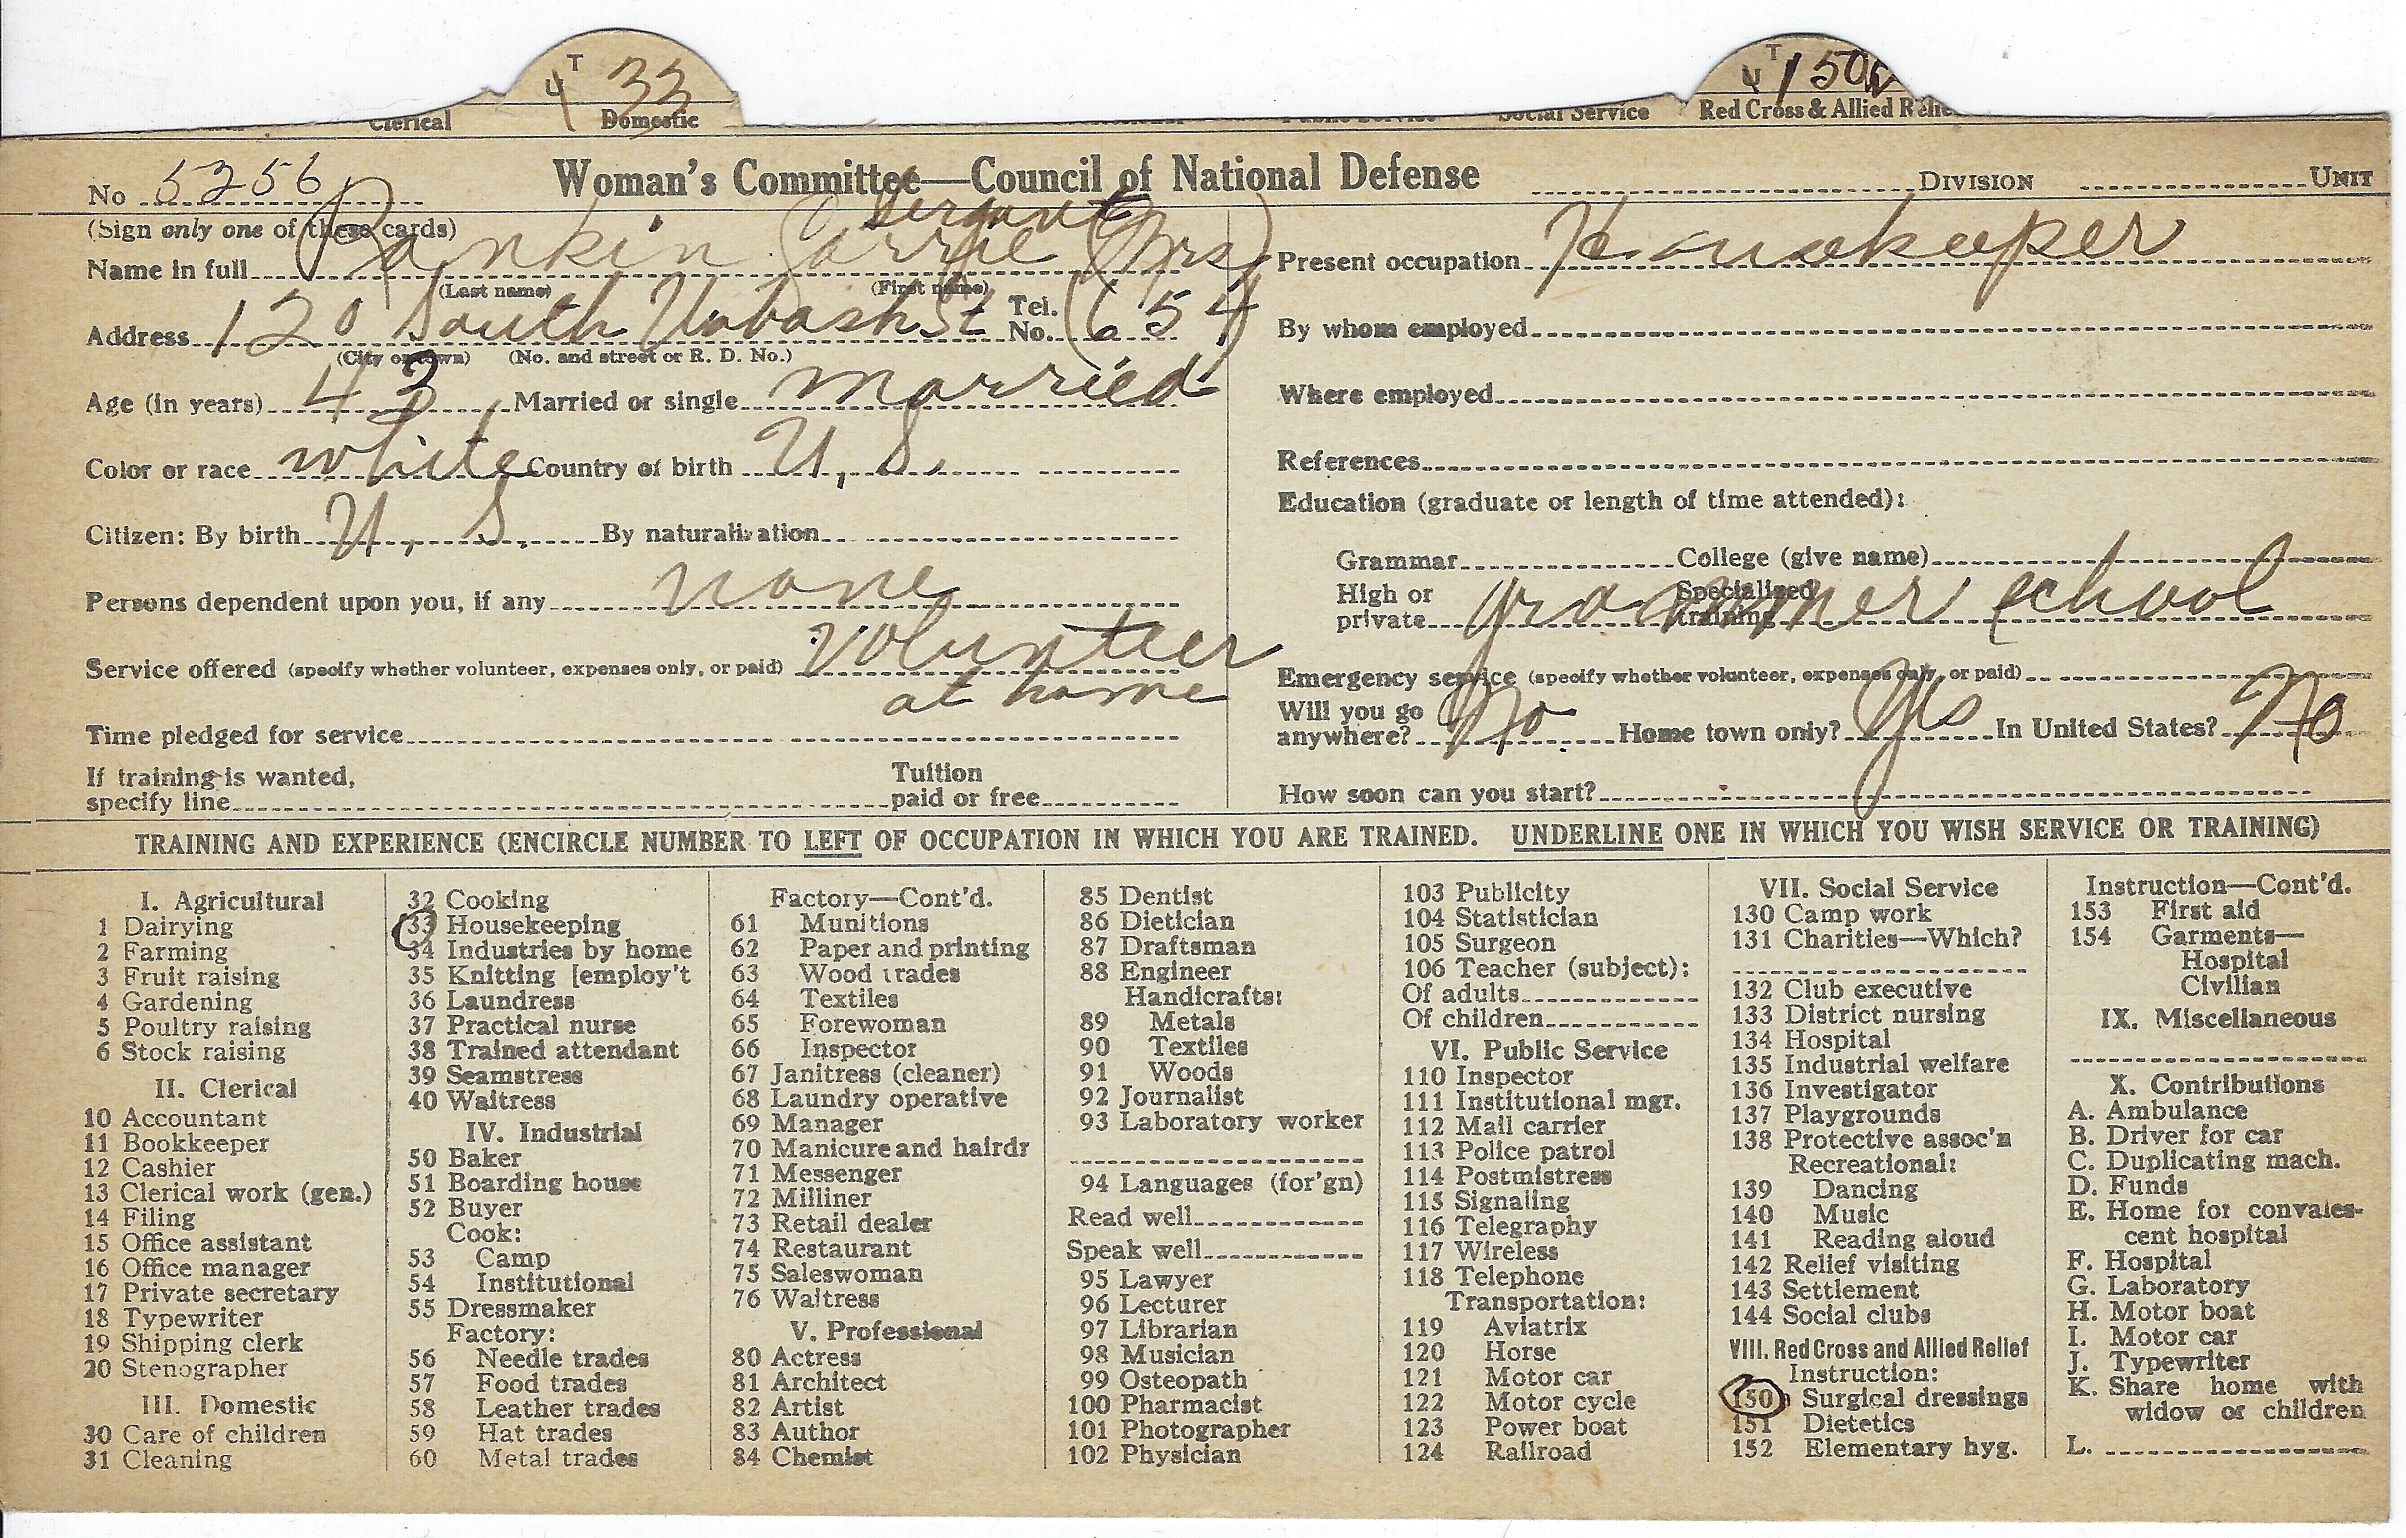 T 4 33 T 4 150
Clerical Domestic Social Service Red Cross & Allied Relie
No 5256 Woman's Committee—Council of National Defense DIVISION UNIT
(Sign only one of these cards)
Name in full Rankin Carrie (Mrs)
(Last name) (First name)
Address 120 South Wabash St Tel. No. (654)
(City or town) (No. and street or R. D. No.)
Age (in years) 43 Married or single married
Color or race white Country of birth U. S.
Citizen: By birth U. S. By naturalization
Persons dependent upon you, if any none
Service offered (specify whether volunteer, expenses only, or paid) volunteer
at home
Time pledged for service
If training is wanted,
specify line Tuition paid or free
Present occupation Housekeeper
By whom employed
Where employed
References
Education (graduate or length of time attended):
Grammar College (give name)
High or private Specialized training grammer school
Emergency service (specify whether volunteer, expenses only, or paid)
Will you go anywhere? No. Home town only? Yes In United States? No
How soon can you start?
TRAINING AND EXPERIENCE (ENCIRCLE NUMBER TO LEFT OF OCCUPATION IN WHICH YOU ARE TRAINED. UNDERLINE ONE IN WHICH YOU WISH SERVICE OR TRAINING)
I. Agricultural
1 Dairying
2 Farming
3 Fruit raising
4 Gardening
5 Poultry raising
6 Stock raising
II. Clerical
10 Accountant
11 Bookkeeper
12 Cashier
13 Clerical work (gen.)
14 Filing
15 Office assistant
16 Office manager
17 Private secretary
18 Typewriter
19 Shipping clerk
20 Stenographer
III. Domestic
30 Care of children
31 Cleaning
32 Cooking
33 Housekeeping
34 Industries by home
35 Knitting [employ't
36 Laundress
37 Practical nurse
38 Trained attendant
39 Seamstress
40 Waitress
IV. Industrial
50 Baker
51 Boarding house
52 Buyer
Cook:
53 Camp
54 Institutional
55 Dressmaker
Factory:
56 Needle trades
57 Food trades
58 Leather trades
59 Hat trades
60 Metal trades
Factory—Cont'd.
61 Munitions
62 Paper and printing
63 Wood trades
64 Textiles
65 Forewoman
66 Inspector
67 Janitress (cleaner)
68 Laundry operative
69 Manager
70 Manicure and hairdr
71 Messenger
72 Milliner
73 Retail dealer
74 Restaurant
75 Saleswoman
76 Waitress
V. Professional
80 Actress
81 Architect
82 Artist
83 Author
84 Chemist
85 Dentist
86 Dietician
87 Draftsman
88 Engineer
Handicrafts:
89 Metals
90 Textiles
91 Woods
92 Journalist
93 Laboratory worker
94 Languages (for'gn)
Read well
Speak well
95 Lawyer
96 Lecturer
97 Librarian
98 Musician
99 Osteopath
100 Pharmacist
101 Photographer
102 Physician
103 Publicity
104 Statistician
105 Surgeon
106 Teacher (subject):
Of adults
Of children
VI. Public Service
110 Inspector
111 Institutional mgr.
112 Mail carrier
113 Police patrol
114 Postmistress
115 Signaling
116 Telegraphy
117 Wireless
118 Telephone
Transportation:
119 Aviatrix
120 Horse
121 Motor car
122 Motor cycle
123 Power boat
124 Railroad
VII. Social Service
130 Camp work
131 Charities—Which?
132 Club executive
133 District nursing
134 Hospital
135 Industrial welfare
136 Investigator
137 Playgrounds
138 Protective assoc'n
Recreational:
139 Dancing
140 Music
141 Reading aloud
142 Relief visiting
143 Settlement
144 Social clubs
VIII. Red Cross and Allied Relief
Instruction:
150 Surgical dressings
151 Dietetics
152 Elementary hyg.
Instruction—Cont'd.
153 First aid
154 Garments—
Hospital
Civilian
IX. Miscellaneous
X. Contributions
A. Ambulance
B. Driver for car
C. Duplicating mach.
D. Funds
E. Home for convales-
cent hospital
F. Hospital
G. Laboratory
H. Motor boat
I. Motor car
J. Typewriter
K. Share home with
widow or children
L.